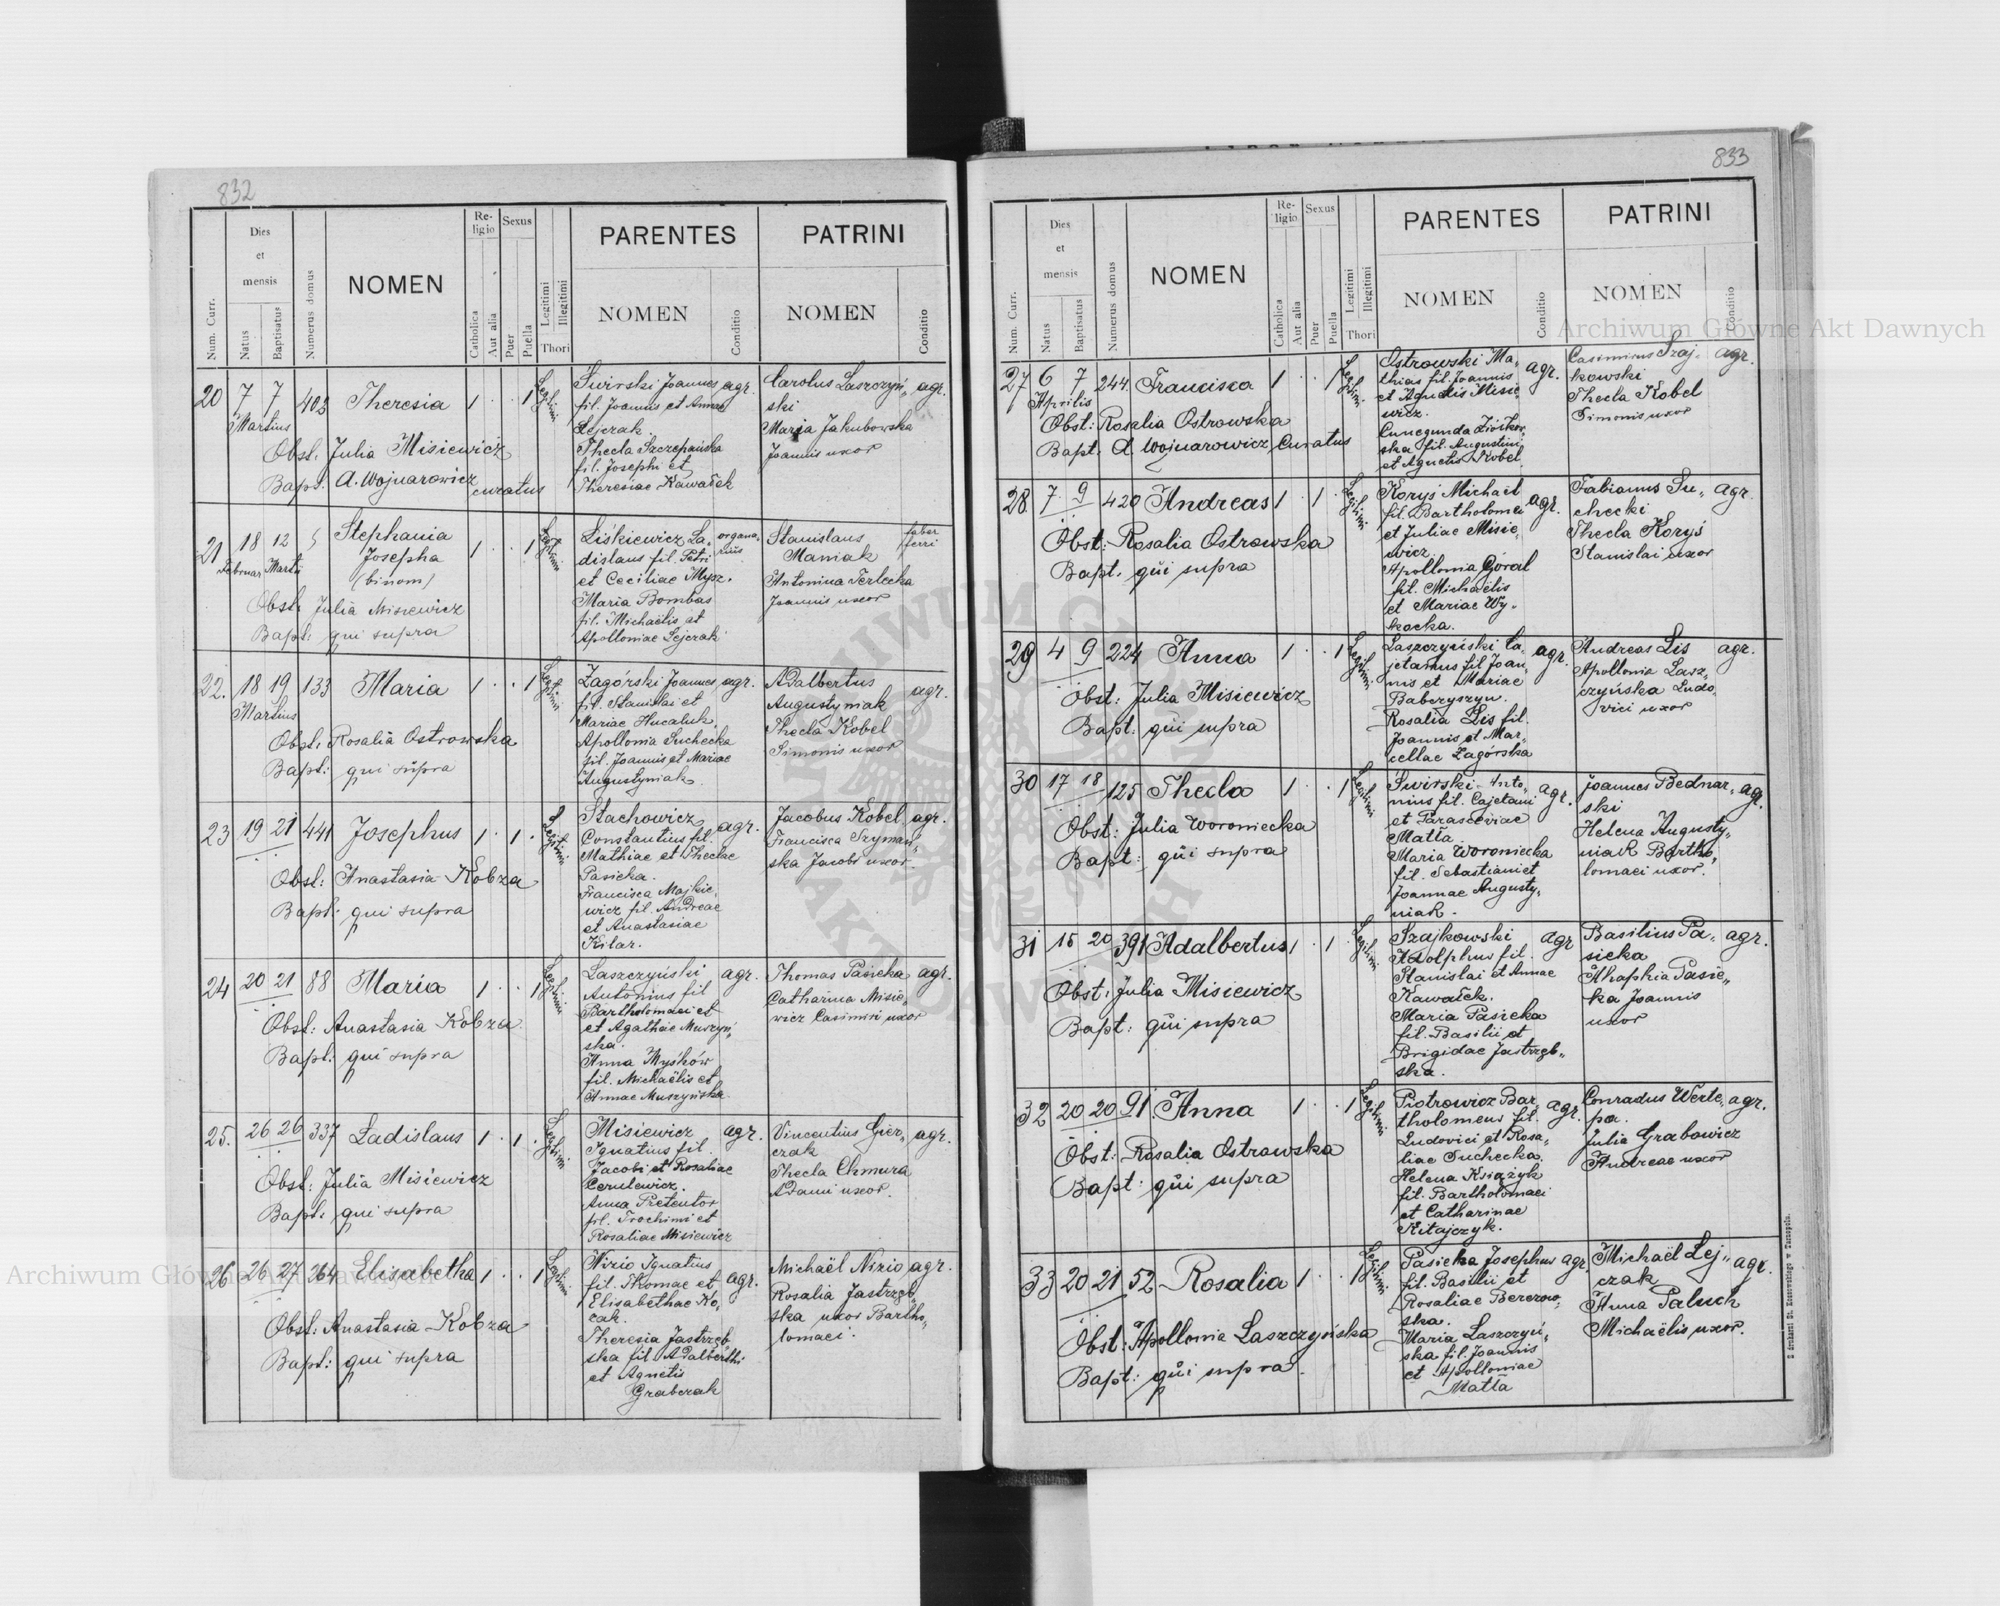 832
Num. Curr.
Dies et mensis
Natus
Baptisatus
Numerus domus
NOMEN
Religio
Catholica
Aut alia
Sexus
Puer
Puella
Legitimi
Illegitimi
Thori
PARENTES
NOMEN
Conditio
PATRINI
NOMEN
Conditio
20 7 7 403 Theresia 1 · · 1 Legitimi
Martius
Obst. Julia Misiewicz
Bapt. A. Wojnarowicz curatus
Świrski Joannes agr.
fil. Joannis et Annae
Lejczak.
Thecla Szczepańska
fil. Josephi et
Theresiae Kawałek
Carolus Laszczyń„ agr.
ski
Maria Jakubowska
Joannis uxor
21 18 12 5 Stephania 1 · · 1 Legitimi
Februar Martii Josepha
(binom)
Obst. Julia Misiewicz
Bapt: qui supra
Liśkiewicz La„ organa„
dislaus fil. Petri rius
et Ceciliae Mysz.
Maria Bombas
fil. Michaëlis et
Apolloniae Lejczak
Stanislaus faber
Maniak ferri
Antonina Terlecka
Joannis uxor
22. 18 19 133 Maria 1 · · 1 Legitimi
Martius
Obst: Rosalia Ostrowska
Bapt: qui supra
Zagórski Joannes agr.
fil. Stanislai et
Mariae Hucaluk.
Apollonia Suchecka
fil. Joannis et Mariae
Augustyniak.
Adalbertus agr.
Augustyniak
Thecla Kobel
Simonis uxor
23 19 21 441 Josephus 1 · 1 · Legitimi
Obst: Anastasia Kobza
Bapt: qui supra
Stachowicz agr.
Constantius fil.
Mathiae et Theclae
Pasieka.
Francisca Majkie„
wicz fil. Andreae
et Anastasiae
Kitar.
Jacobus Kobel agr.
Francisca Szymań„
ska Jacobi uxor.
24 20 21 88 Maria 1 · · 1 Legitimi
Obst: Anastasia Kobza
Bapt: qui supra
Laszczyński agr.
Antonius fil
Bartholomaei et
et Agathae Muszyń„
ska.
Anna Myśków
fil. Michaëlis et
Annae Muszyńska.
Thomas Pasieka agr.
Catharina Misie„
wicz Casimiri uxor
25. 26 26 337 Ladislaus 1 · 1 · Legitimi
Obst: Julia Misiewicz
Bapt: qui supra
Misiewicz agr.
Ignatius fil.
Jacobi et Rosaliae
Cerulewicz.
Anna Pretentor
fil. Trochimi et
Rosaliae Misiewicz
Vincentius Gier„ agr.
czak
Thecla Chmura
Adami uxor.
26 26 27 264 Elisabetha 1 · · 1 Legitimi
Obst: Anastasia Kobza
Bapt: qui supra
Nizio Ignatius agr.
fil. Thomae et
Elisabethae Ko„
cak.
Theresia Jastrzęb
ska fil. Adalberti
et Agnetis
Grabczak
Michaël Nizio agr.
Rosalia Jastrzęb„
ska uxor Bartho„
lomaei.
833
Num. Curr.
Dies et mensis
Natus
Baptisatus
Numerus domus
NOMEN
Religio
Catholica
Aut alia
Sexus
Puer
Puella
Legitimi
Illegitimi
Thori
PARENTES
NOMEN
Conditio
PATRINI
NOMEN
Conditio
27 6 7 244 Francisca 1 · · 1 Legitimi
Aprilis
Obst: Rosalia Ostrowska
Bapt. A. Wojnarowicz curatus
Ostrowski Ma„ agr.
thias fil. Joannis
et Agnetis Misie„
wicz.
Cunegunda
ska fil. Augustini
et Agnetis Kobel.
Casimirus Szaj„ agr.
kowski
Thecla Kobel
Simonis uxor
28 7 9 420 Andreas 1 · 1 · Legitimi
Obst: Rosalia Ostrowska
Bapt. qui supra
Koryś Michaël agr.
fil. Bartholomei
et Juliae Misie„
wicz
Apollonia Góral
fil. Michaëlis
et Mariae Wy„
Fabianus Su„ agr.
checki
Thecla Koryś
Stanislai uxor
29 4 9 224 Anna 1 · · 1 Legitimi
Obst: Julia Misiewicz
Bapt: qui supra
Laszczyński Ca„ agr.
jetanus fil. Joan„
nis et Mariae
Babczyszyn.
Rosalia Lis fil.
Joannis et Mar„
cellae Zagórska
Andreas Lis agr.
Apollonia Lasz„
czyńska Ludo„
vici uxor
30 17 18 125 Thecla 1 · · 1 Legitimi
Obst: Julia Woroniecka
Bapt: qui supra
Świrski Anto„ agr.
nius fil. Cajetani
et Parasceviae
Matła.
Maria Woroniecka
fil. Sebastiani et
Joannae Augusty„
niak.
Joannes Bednar„ agr.
ski
Helena Augusty„
niak Bartho„
lomaei uxor.
31 15 20 391 Adalbertus 1 · 1 · Legitimi
Obst: Julia Misiewicz
Bapt: qui supra
Szajkowski agr
Adolphus fil.
Stanislai et Annae
Kawałek.
Maria Pasieka
fil. Basilii et
Brigidae Jastrzęb„
ska.
Basilius Pa„ agr.
sieka
Ahaphia Pasie„
ka Joannis
uxor
32 20 20 91 Anna 1 · · 1 Legitimi
Obst: Rosalia Ostrowska
Bapt: qui supra
Piotrowicz Bar„ agr.
tholomeus fil.
Ludovici et Rosa„
liae Suchecka.
Helena Książyk
fil. Bartholomaei
et Catharinae
Kitajczyk.
Conradus Werte„ agr.
pa.
Julia Grabowicz
Andreae uxor
33 20 21 52 Rosalia 1 · · 1 Legitimi
Obst: Apollonia Laszczyńska
Bapt: qui supra.
Pasieka Josephus agr.
fil. Basilii et
Rosaliae Berezow„
ska.
Maria Laszczyń„
ska fil. Joannis
et Apolloniae
Matła
Michaël Lej„ agr.
czak
Anna Paluch
Michaëlis uxor.
Z drukarni St. Kossowskiego w Tarnopolu.
Archiwum Główne Akt Dawnych
Archiwum Główne Akt Dawnych
Archiwum Główne Akt Dawnych